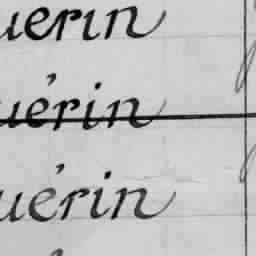 uerin
uérin
uérin